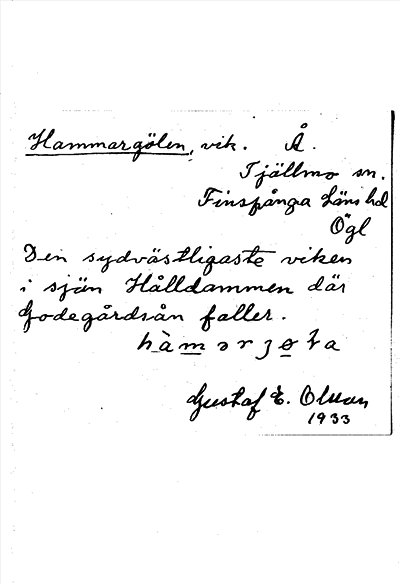 Hammargölen, vik. Å.
Tjällmo sn.
Finspånga Läns hd
Ögl
Den sydvästligaste viken
i sjön Hålldammen där
Godegårdsån faller.
Gustaf E. Olsson
1933